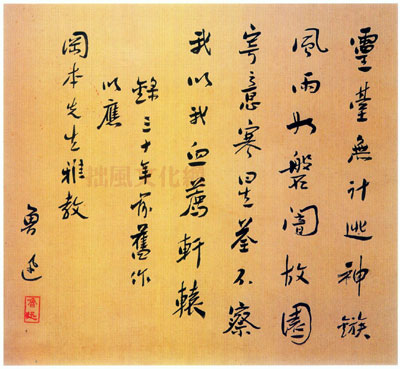 靈臺無計逃神鏃
風雨如磐闇故園
寄意寒星荃不察
我以我血薦軒轅
錄三十年前舊作
以應
岡本先生雅教
魯迅
魯迅
拙風文化網